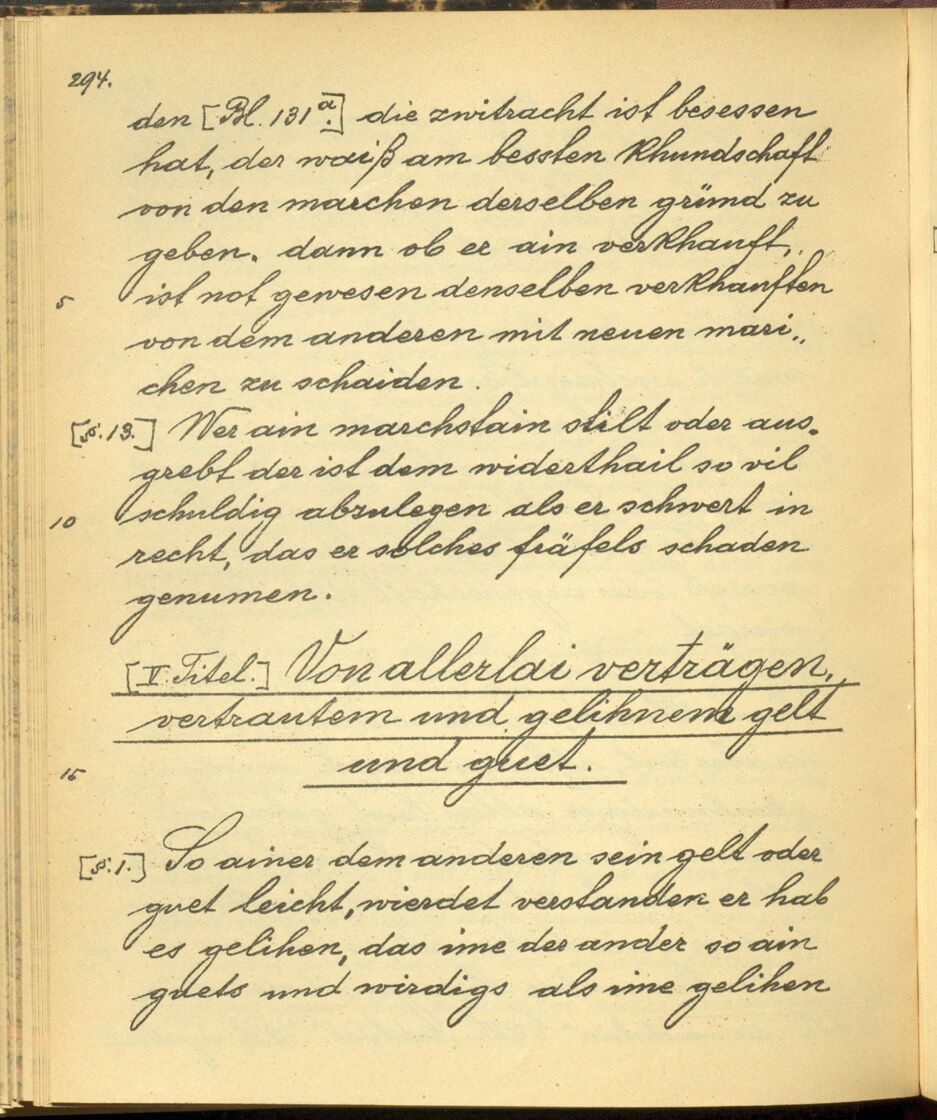 294.
den [Bl. 131a.] die zwitracht ist besessen
hat, der waiß am bessten khundschaft
von den marchen derselben gründ zu
geben. dann ob er ain verkhauft,
5 ist not gewesen denselben verkhauften
von dem anderen mit neuen mari„
chen zu schaiden.
[§. 13.] Wer ain marchstain stilt oder aus„
grebt der ist dem widerthail so vil
10 schuldig abzulegen als er schwert in
recht, das er solches fräfels schaden
genumen.
[V. Titel.] Von allerlai verträgen,
vertrautem und gelihnem gelt
15 und guet.
[§. 1.] So ainer dem anderen sein gelt oder
guet leicht, wierdet verstanden er hab
es gelihen, das ime der ander so ain
guets und wirdigs als ime gelihen